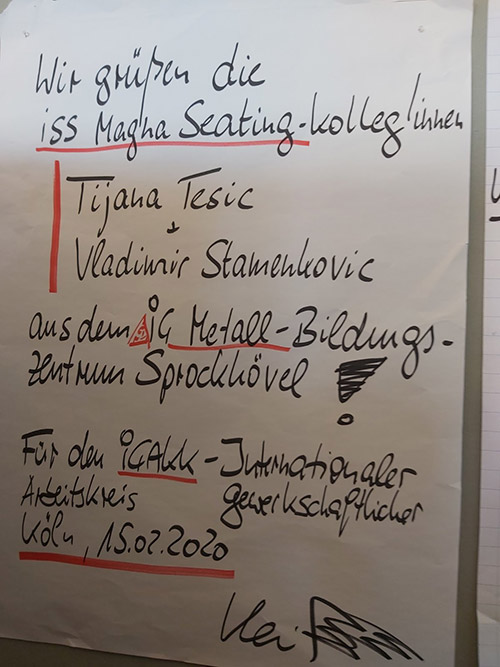 Wir grüßen die
ISS Magna Seating-Kolleg/innen
Tijana Tesic
+
Vladimir Stamenkovic
aus dem IG Metall-Bildungs-
zentrum Sprockhövel!
Für den IGAKK - Internationaler
Arbeitskreis gewerkschaftlicher
Köln, 15.02.2020